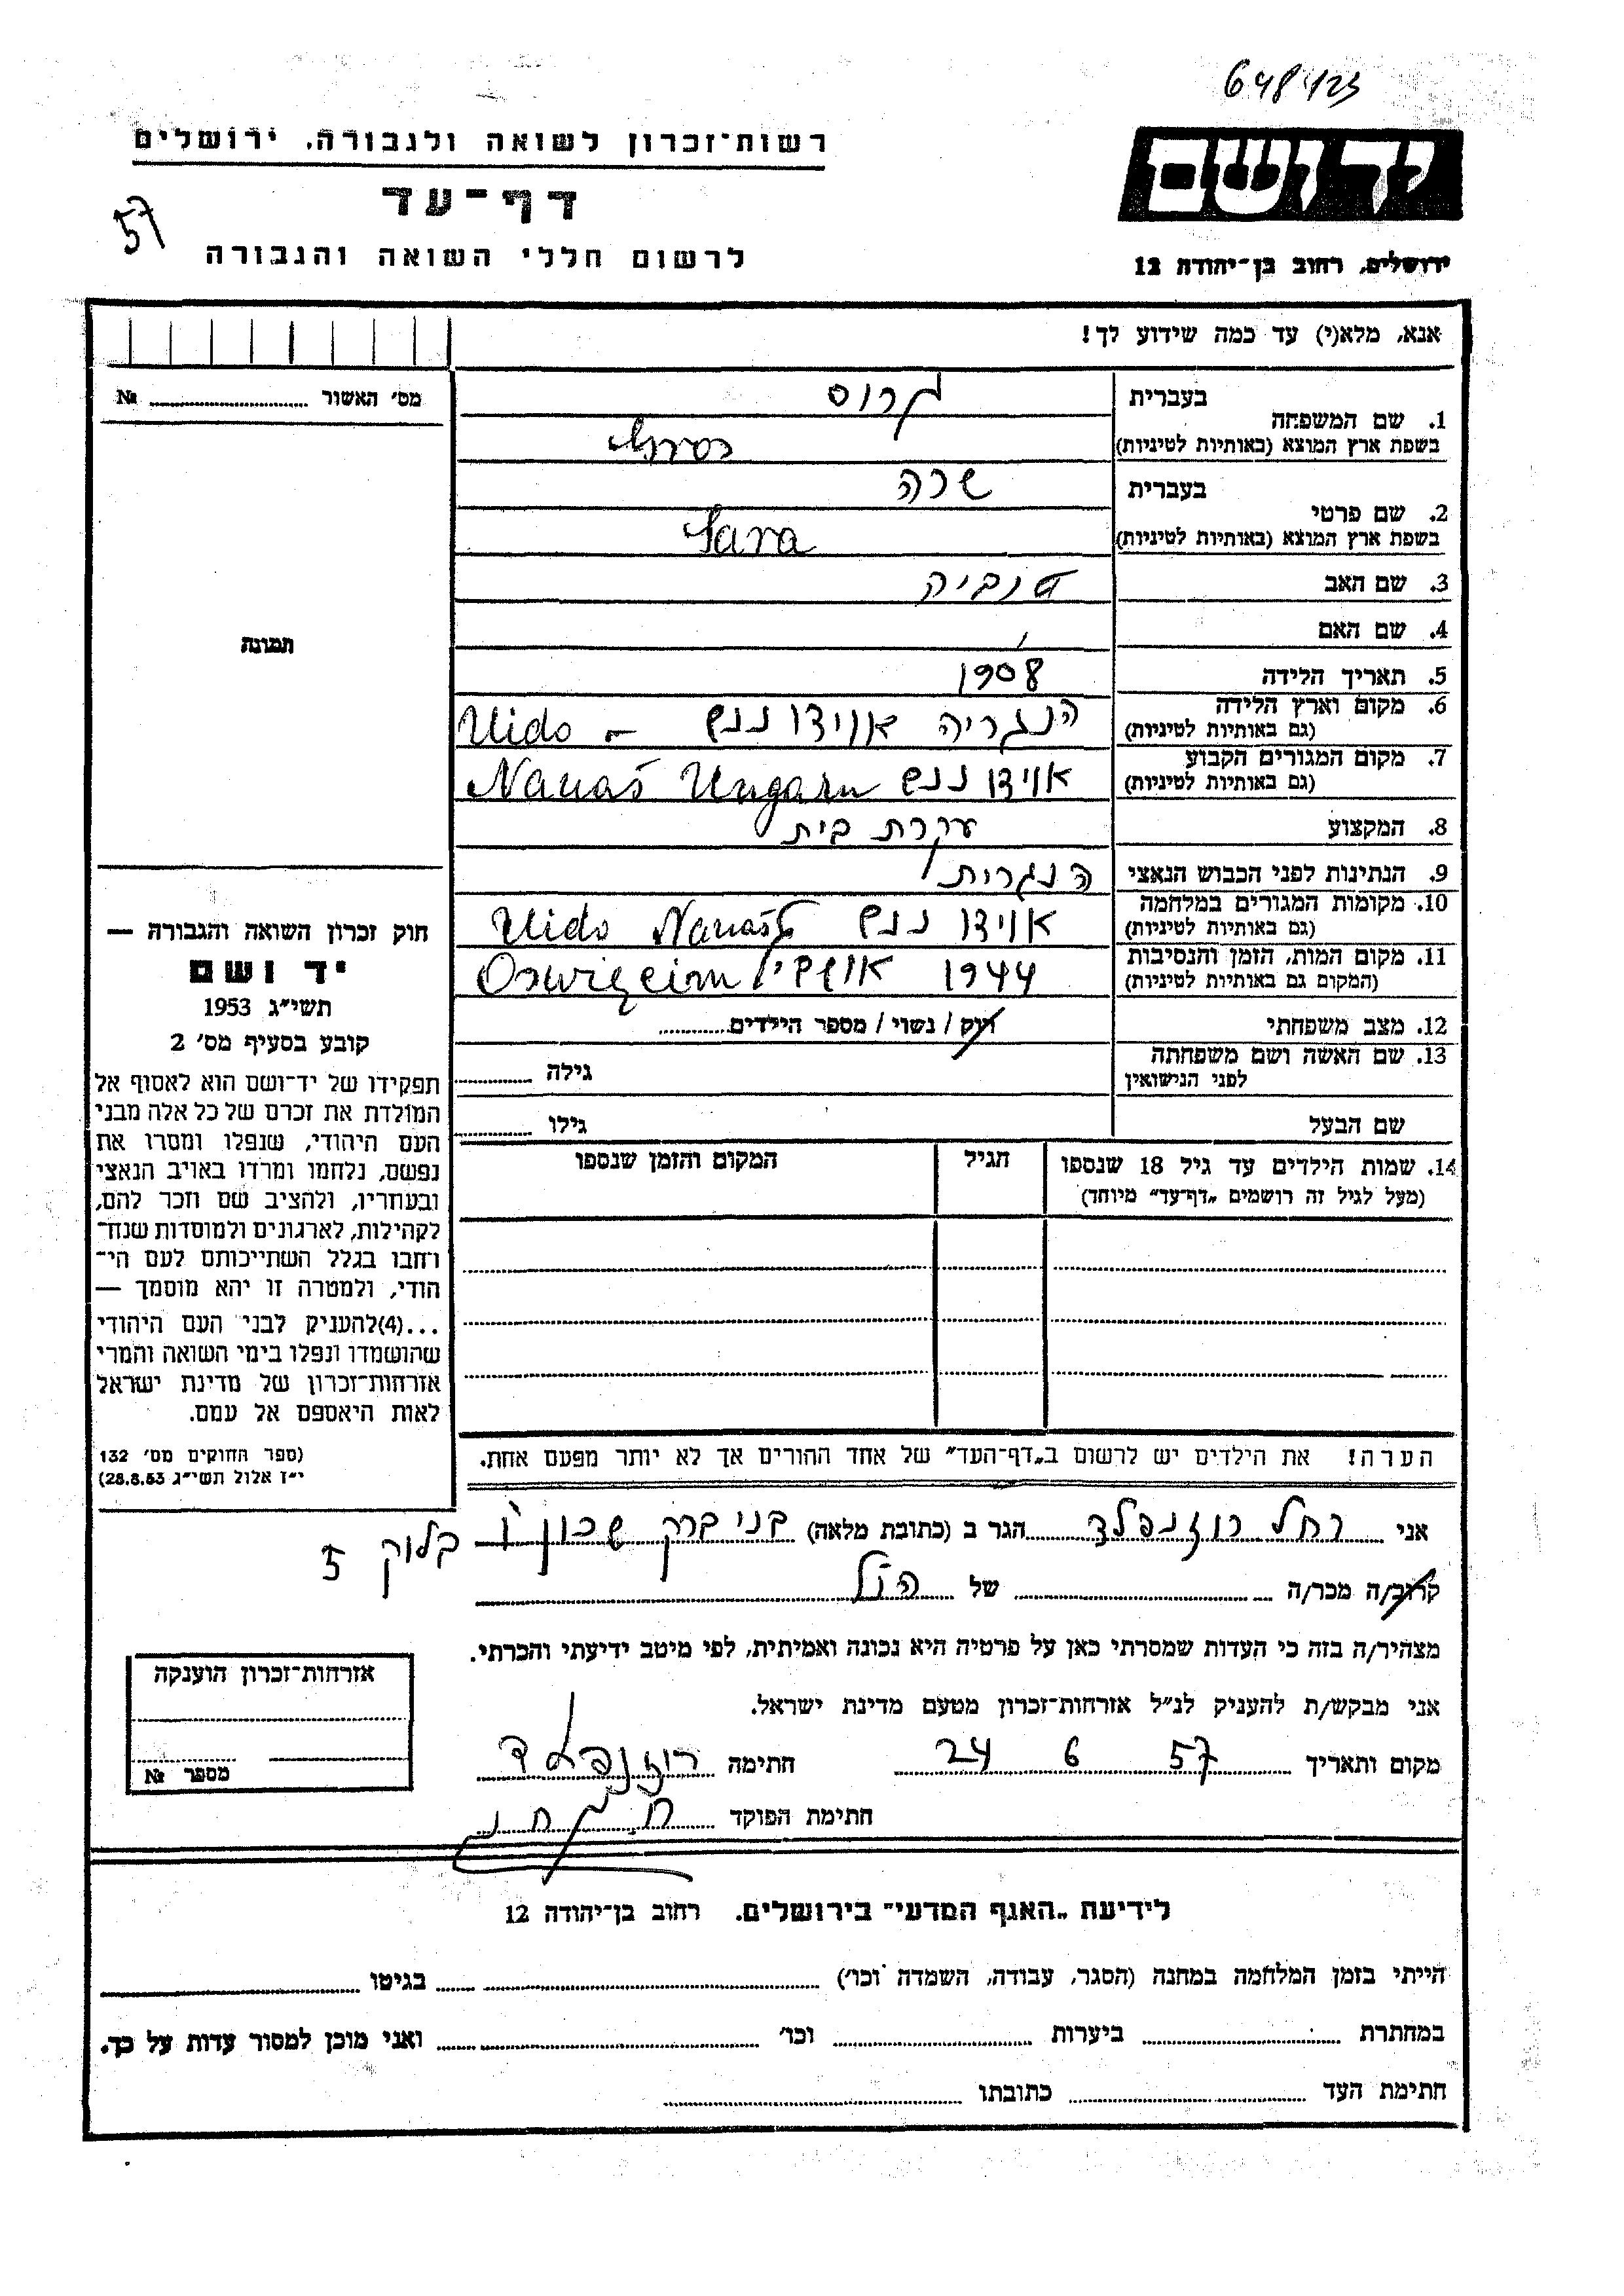 648423
רשות־זכרון לשואה ולגבורה. ירושלים
יד ושם
דף־עד
57
לרשום חללי השואה והגבורה
ירושלים, רחוב בן־יהודה 12
אנא, מלא(י) עד כמה שידוע לך!
מס׳ האשור № 
1. שם המשפחה
בעברית
בשפת ארץ המוצא (באותיות לטיניות)
2. שם פרטי
בעברית שרה
בשפת ארץ המוצא (באותיות לטיניות) Sara
3. שם האב טוביה
4. שם האם
5. תאריך הלידה 1908
6. מקום וארץ הלידה הנגריה אוידו ננש – Uido
(גם באותיות לטיניות)
7. מקום המגורים הקבוע אוידו ננש Nanaš Ungarn
(גם באותיות לטיניות)
8. המקצוע עקרת בית
9. הנתינות לפני הכבוש הנאצי הנגרית
10. מקומות המגורים במלחמה אוידו ננש Uido Nanaš
(גם באותיות לטיניות)
11. מקום המות, הזמן והנסיבות 1944 Oswięcim
(המקום גם באותיות לטיניות)
12. מצב משפחתי רוק / נשוי / מספר הילדים
13. שם האשה ושם משפחתה גילה
לפני הנישואין
שם הבעל גילו
14. שמות הילדים עד גיל 18 שנספו הגיל המקום והזמן שנספו
(מעל לגיל זה רושמים „דף־עד״ מיוחד)
הערה! את הילדים יש לרשום ב„דף־העד״ של אחד ההורים אך לא יותר מפעם אחת.
תמונה
חוק זכרון השואה והגבורה —
יד ושם
תשי״ג 1953
קובע בסעיף מס׳ 2
תפקידו של יד־ושם הוא לאסוף אל
המולדת את זכרם של כל אלה מבני
העם היהודי, שנפלו ומסרו את
נפשם, נלחמו ומרדו באויב הנאצי
ובעוזריו, ולהציב שם וזכר להם,
לקהילות, לארגונים ולמוסדות שנח־
רחבו בגלל השתייכותם לעם הי־
הודי, ולמטרה זו יהא מוסמך —
...(4)להעניק לבני העם היהודי
שהושמדו ונפלו בימי השואה והמרי
אזרחות־זכרון של מדינת ישראל
לאות היאספם אל עמם.
(ספר החוקים מס׳ 132
י״ז אלול תשי״ג 28.8.53)
אני רחל רוזנפלד הגר ב (כתובת מלאה) בני ברק שכון ו בלוק 5
קרוב/ה מכר/ה של הנ״ל
מצהיר/ה בזה כי העדות שמסרתי כאן על פרטיה היא נכונה ואמיתית, לפי מיטב ידיעתי והכרתי.
אני מבקש/ת להעניק לנ״ל אזרחות־זכרון מטעם מדינת ישראל.
מקום ותאריך 24 6 57 חתימה רוזנפלד
חתימת הפוקד
אזרחות־זכרון הוענקה
מספר №
לידיעת „האגף המדעי״ בירושלים. רחוב בן־יהודה 12
הייתי בזמן המלחמה במחנה (הסגר, עבודה, השמדה וכו׳) בגיטו
במחתרת ביערות וכו׳ ואני מוכן למסור עדות על כך.
חתימת העד כתובתו